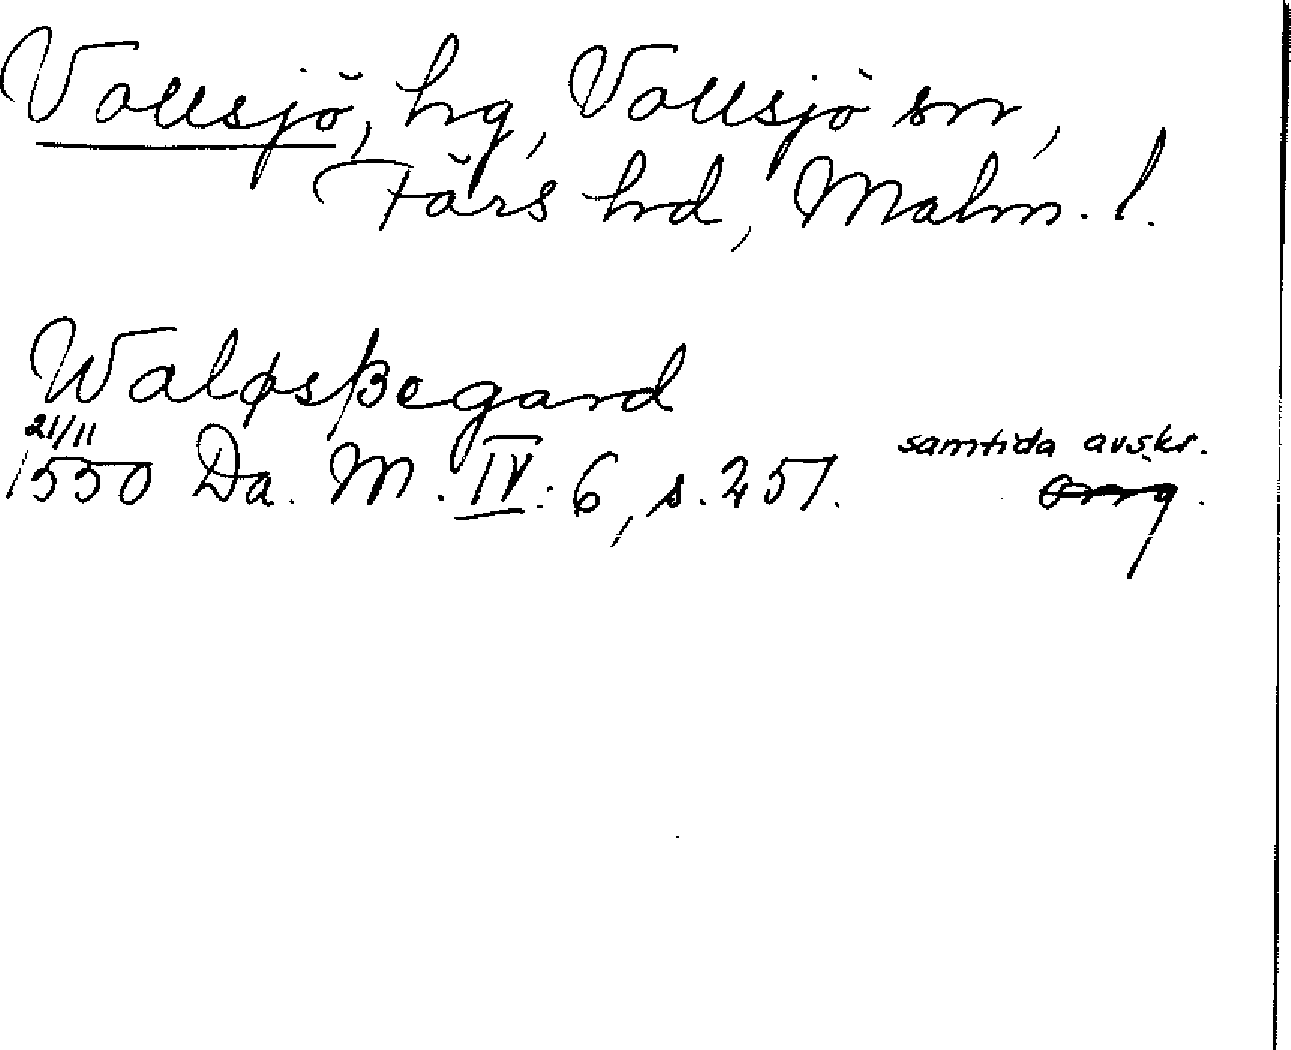 Vollsjö, hg, Vollsjö sn,
Färs hd, Malm. l.
Waløsßegard
21/11 samtida avskr.
1550 Da. M. IV: 6, s. 251. Orig.